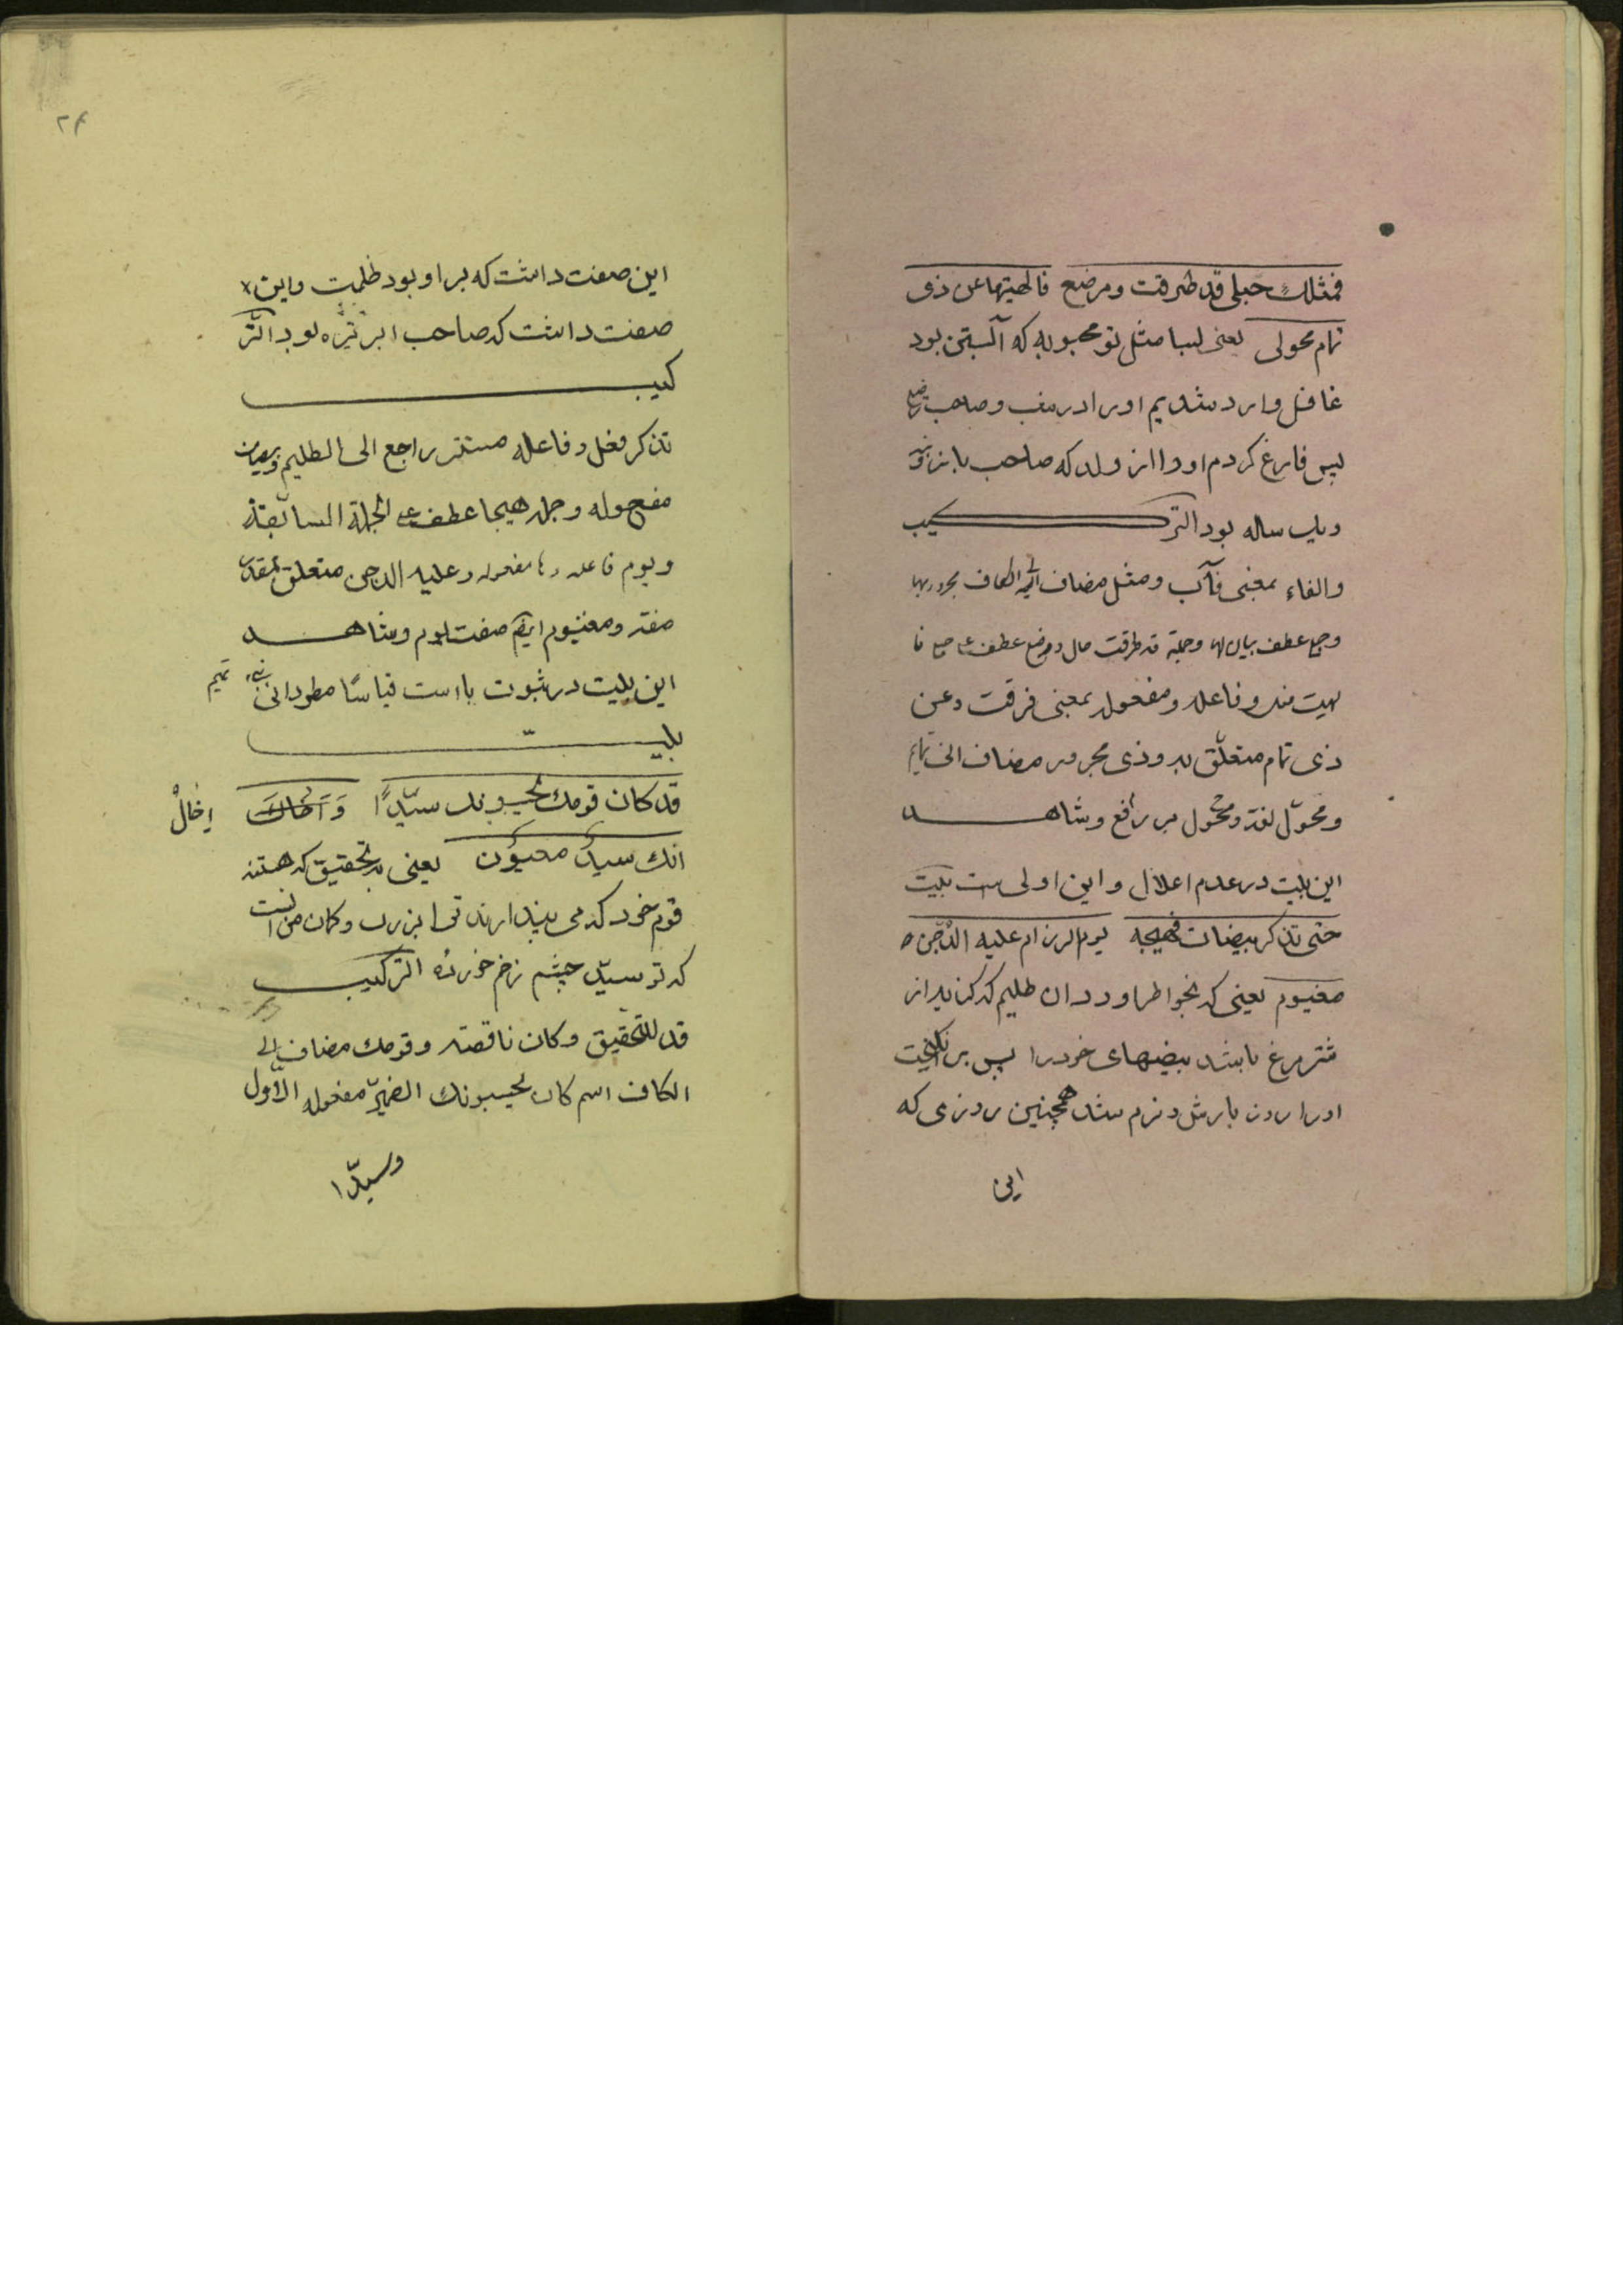 فمثلك حبلى قد طرقت ومرضع فالهيتها عن ذى
تمام محولى يعنى لبسا مثل تو محبوبه كه آلبستن بود
غافل وارد شديم اورا در شب و صاحب
پس فارغ كردم اورا از ولد كه صاحب
ويك ساله بود التركيب
والفاء بمعنى فآب ومثل مضاف الى الكاف مجرور بها
عطف بيان لها وجملة قد طرقت حال ومرضع عطف فا
لهيت منه وفاعله ومفعوله بمعنى فرقت وعن
ذى تمام متعلّق به وذى مجرور مضاف الى تمايم
ومحوّل لغة ومحول بر رافع وشاهد
اين بيت در عدم اعلال واين اولى است بيت
حتى تذكر بيضات فهيجه يوم الرزام عليه الدّجن
مغيوم يعنى كه بخواطر اورد ان ظليم كه كنايه از
شتر مرغ باشد بيضهاى خود را پس بر انگيخت
اورا روز بارش ونرم شد همچنين روزى كه
اين
٢٤
اين صفت داشت كه بر او بود ظلمت واين
صفت داشت كه صاحب ابر تيره بود التر
كيب
تذكر فعل وفاعله مستتر راجع الى الظليم وبيضات
مفعوله وجمله هيجا عطف على الجملة السابقة
ويوم فاعله وها مفعوله وعليه الدجن متعلق بمقدر
صفة ومغيوم ايضا صفت يوم وشاهد
اين بيت در ثبوت يا است قياسا مطردا بنى تميم
بيت
قد كان قومك يحسبونك سيّدًا وَاَخالك إخالْ
انك سيدٌ معيؤن يعنى بتحقيق كه هستند
قوم خود كه مى پندارند ترا بزرك وكمان من انست
كه تو سيّد چشم زخم خورده التركيب
قد للتحقيق وكان ناقصة وقومك مضاف الى
الكاف اسم كان يحسبونك الضمير مفعوله الاول
وسيدّا